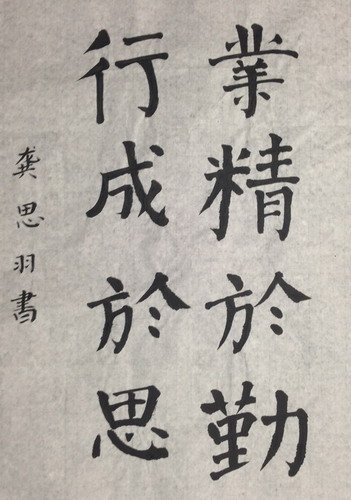 業精於勤
行成於思
龔思羽書